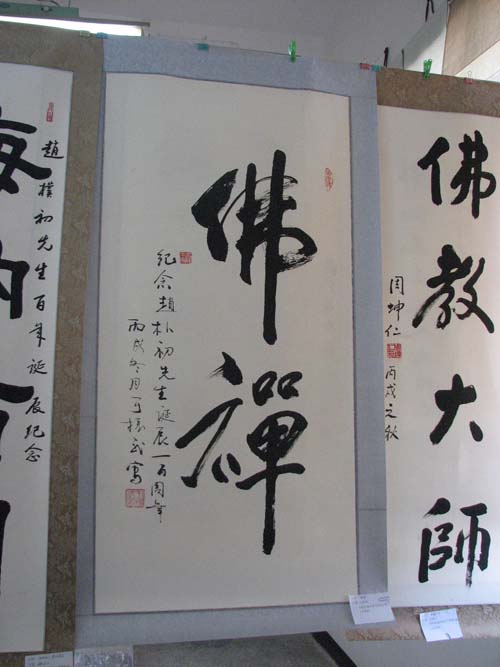 佛教大師
周坤仁 丙戌之秋
佛禪
纪念趙朴初先生诞辰一百周年
丙戌冬月于振武寫
趙樸初先生百年诞辰纪念